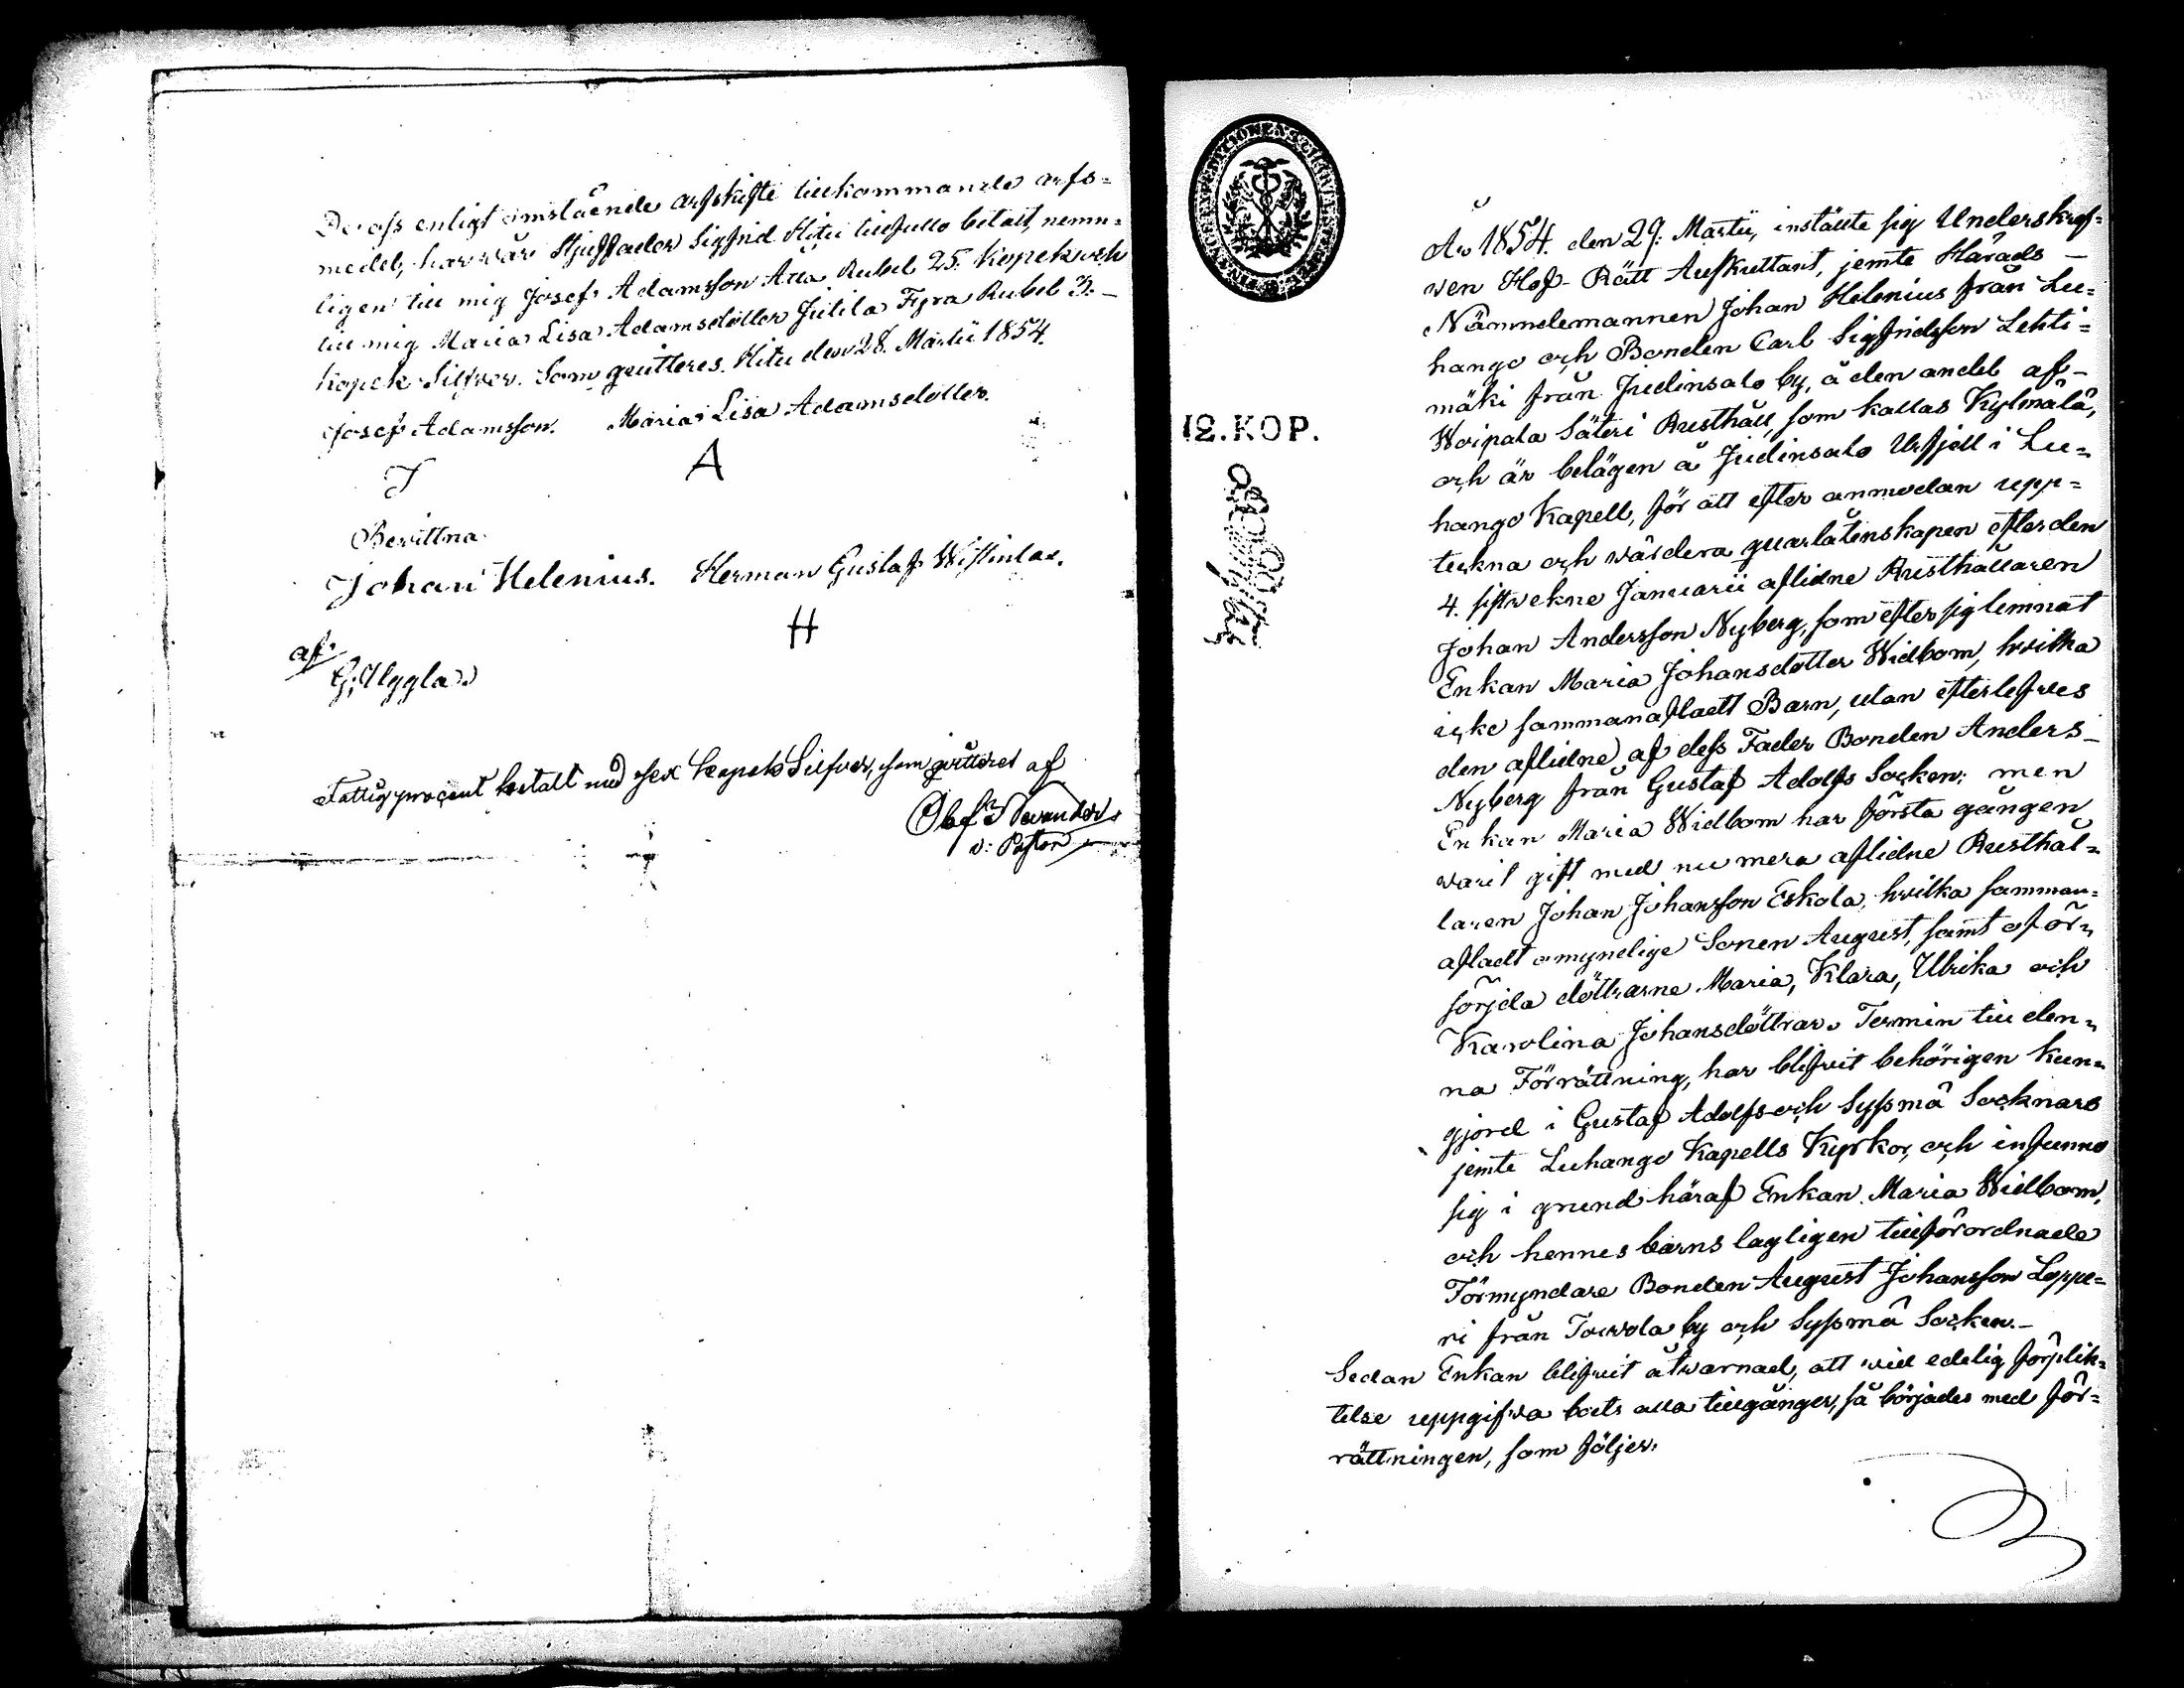 De oss enligt omstående arfskifte tillkommande arfs=
medel, har vår Stjuffader Sigfrid Hitu tillfullo betalt, nemn=
ligen till mig Josef Adamsson Åtta Rubel 25. kopek och
till mig Maria Lisa Adamsdotter Jutila Fyra Rubel 3. -
kopek Silfver. Som qvitteres. Hitu den 28. Martii 1854.
Josef Adamsson. Maria Lisa Adamsdotter.
J A
Bevittna
Johan Helenius. Herman Gustaf
H
af
G. Uggla.
Fattigprocent betalt med sex kopek Silfver, som qvitteret af
v: Pastor
12. KOP.
År 1854. den 29. Martii, instälte sig Underskref=
ven Hof-Rätt Auskultant, jemte Härads -
Nämndemannen Johan Helenius från Lu=
hango och Bonden Carl Sigfridsson Lehti=
mäki från Judinsalo by, å den andel af -
Woipala Säteri Rusthåll, som kallas Kylmälä,
och är belägen å Judinsalo Utfjell i Lu=
hango Kapell, för att efter anmodan upp=
tekna och värdera qvarlåtenskapen efter den
4. sistvekne Januarii aflidne Rusthållaren
Johan Andersson Nyberg, som efter sig lemnat
Enkan Maria Johansdotter Widbom, hvilka
icke sammanafladt Barn, utan efterlefves
den aflidne af dess Fader Bonden Anders -
Nyberg från Gustaf Adolfs Socken; men
Enkan Maria Widbom har första gången
varit gift med nu mera aflidne Rusthål=
laren Johan Johansson Eskola, hvilka samman=
afladt omyndige Sonen August, samt oför=
sörjda döttrarne Maria, Klara, Ulrika och
Karolina Johansdöttrar. Termin till den=
na Förrättning, har blifvit behörigen kun=
gjord i Gustaf Adolfs och Sysmä Socknars
jemte Luhango Kapells Kyrkor, och infunno
sig i grund häraf Enkan Maria Widbom,
och hennes barns lagligen tillförordnade
Förmyndare Bonden August Johansson Loppe=
ri från Toivola by och Sysmä Socken. -
Sedan Enkan blifvit åtvarnad, att vid edelig förplik=
telse uppgifva boets alla tillgånger, så börjades med för=
rättningen, som följer.